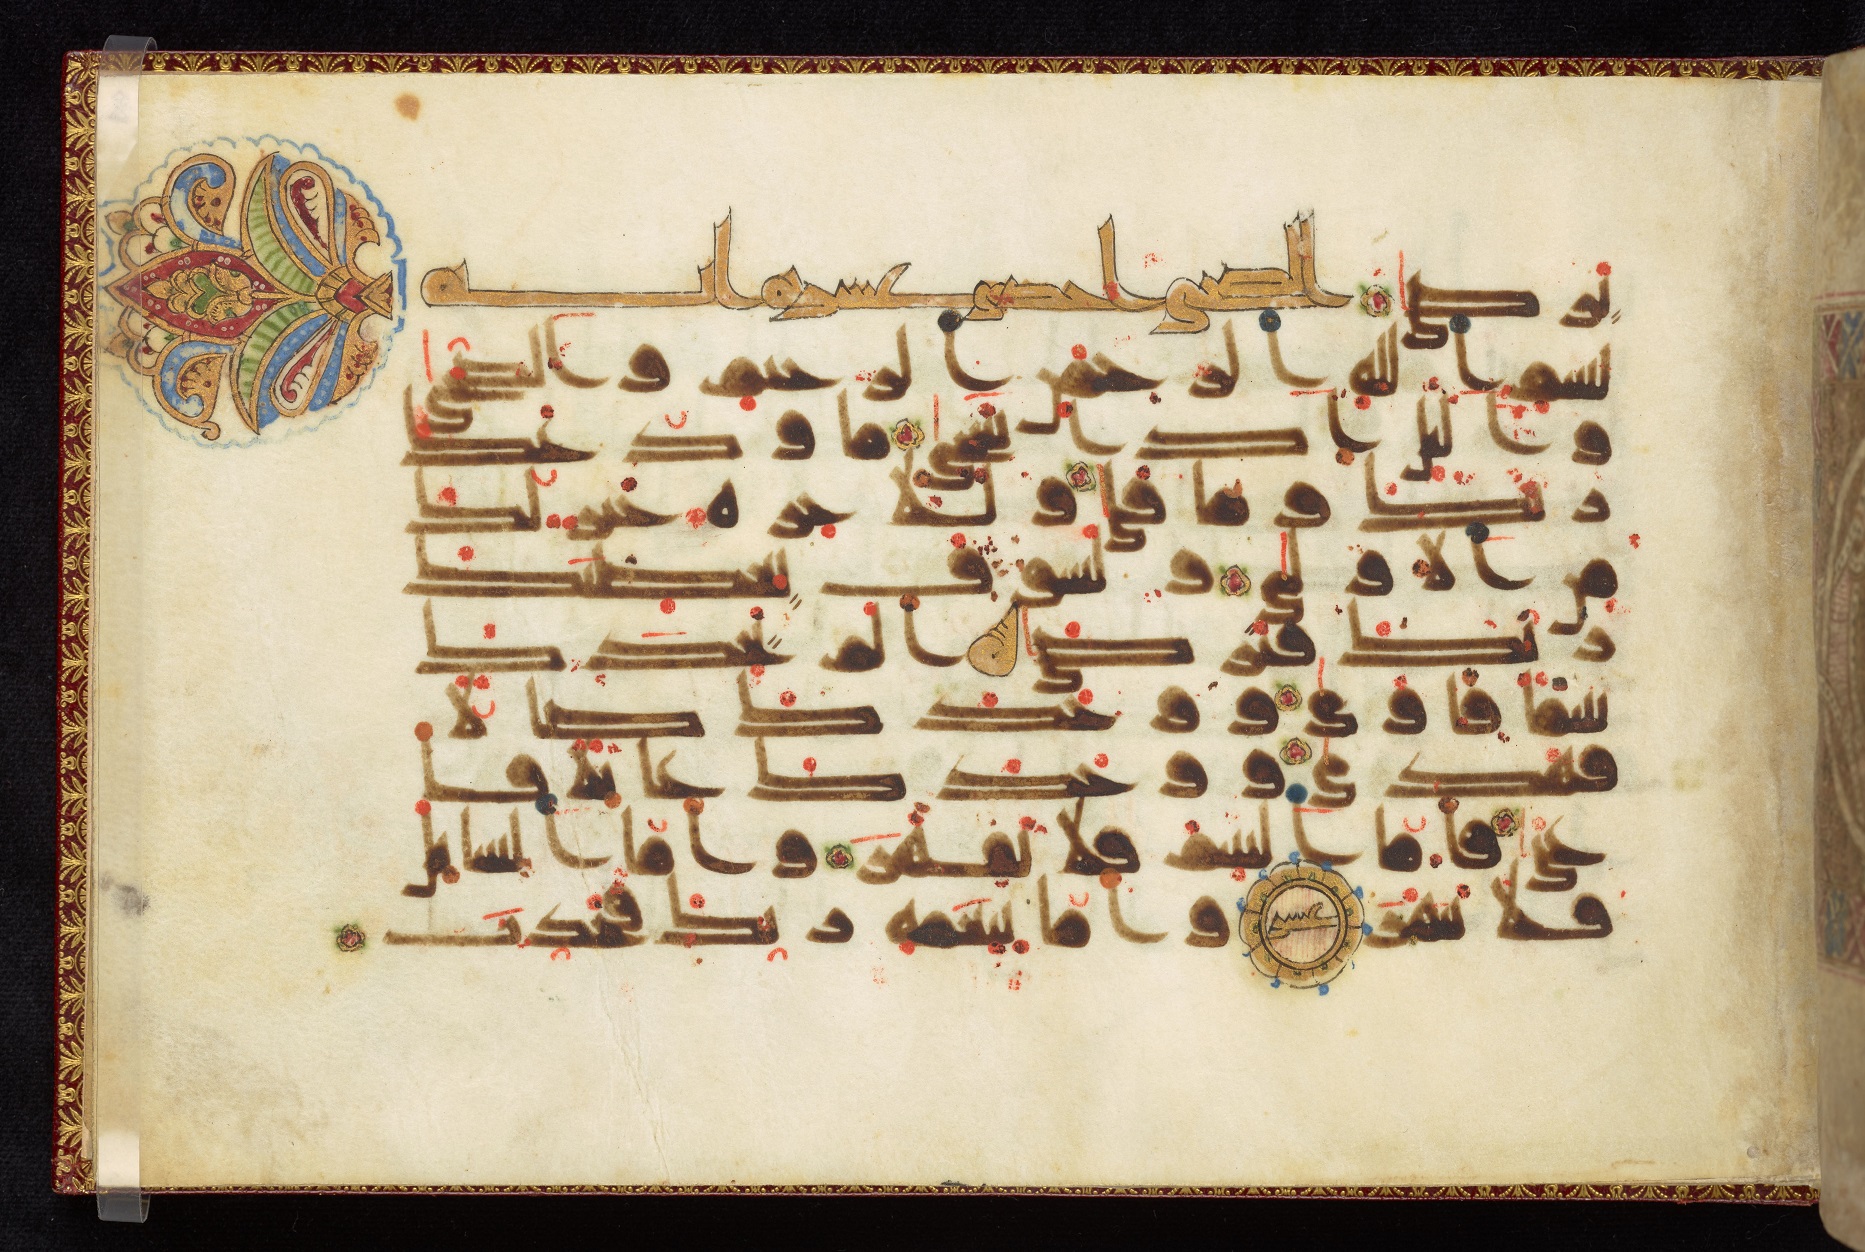 يرضى الضحى احدى عشرة اية
بسم الله الرحمن الرحيم والضحى
واليل اذا سجى ما ودعك
ربك وما قلى وللاخرة خير لك
من الاولى ولسوف يعطيك
ربك فترضى الم يجدك
يتيما فاوى ووجدك ضالا
فهدى ووجدك عائلا فا
غنى فاما اليتيم فلا تقهر واما السايل
فلا تنهر عشر واما بنعمة ربك فحدث